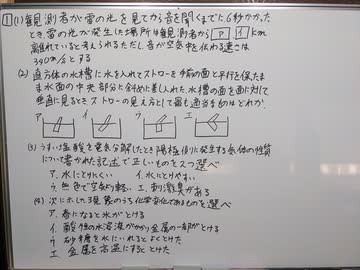 1 (1) 観測者が雷の光を見てから音を聞くまでに6秒かかった
とき雷の光が発生した場所は観測者から ア . イ km
離れていると考えられるただし音が空気中を伝わる速さは
340m/sとする
(2) 直方体の水槽に水を入れてストローを手前の面と平行を保たま
ま水面の中央部分に斜めに差し入れた水槽の面に対して
垂直に見るときストローの見え方として最も適当なものはどれか.
ア イ ウ エ
(3) うすい塩酸を電気分解したとき陽極側に発生する気体の性質
について書かれた記述で正しいものを2つ選べ
ア. 水にとけにくい イ. 水にとけやすい
ウ 無色で空気より軽い エ. 刺激臭がある
(4) 次にホした現象のうち化学変化であるものを選べ
ア. 春になると氷がとける
イ. 酸性の水溶液がかかり金属の一部がとける
ウ 砂糖を水にいれるとよくとけた
エ 金属を高温にするととけた